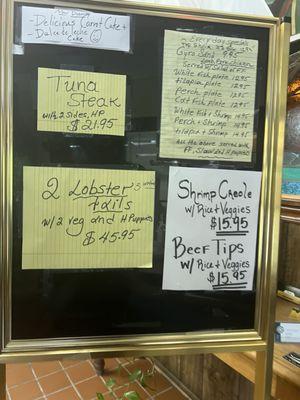 New Desserts
- Delicious Carrot Cake +
- Dulce de leche
Cake
Tuna
Steak
w/ 2 Sides, HP
$ 21.95
Everyday specials
Gyro
Served
White fish plate 12.95
tilapia plate 12.95
Perch plate 12.95
Cat fish plate 12.95
White Fish + Shrimp 14.95
Perch + Shrimp 14.95
tilapia + Shrimp 14.95
All the above served with
FF, Slaw and H puppies
2 Lobster
tails
w/ 2 veg and H Puppies
$ 45.95
Shrimp Creole
w/ Rice + Veggies
$15.95
Beef Tips
w/ Rice + Veggies
$15.95